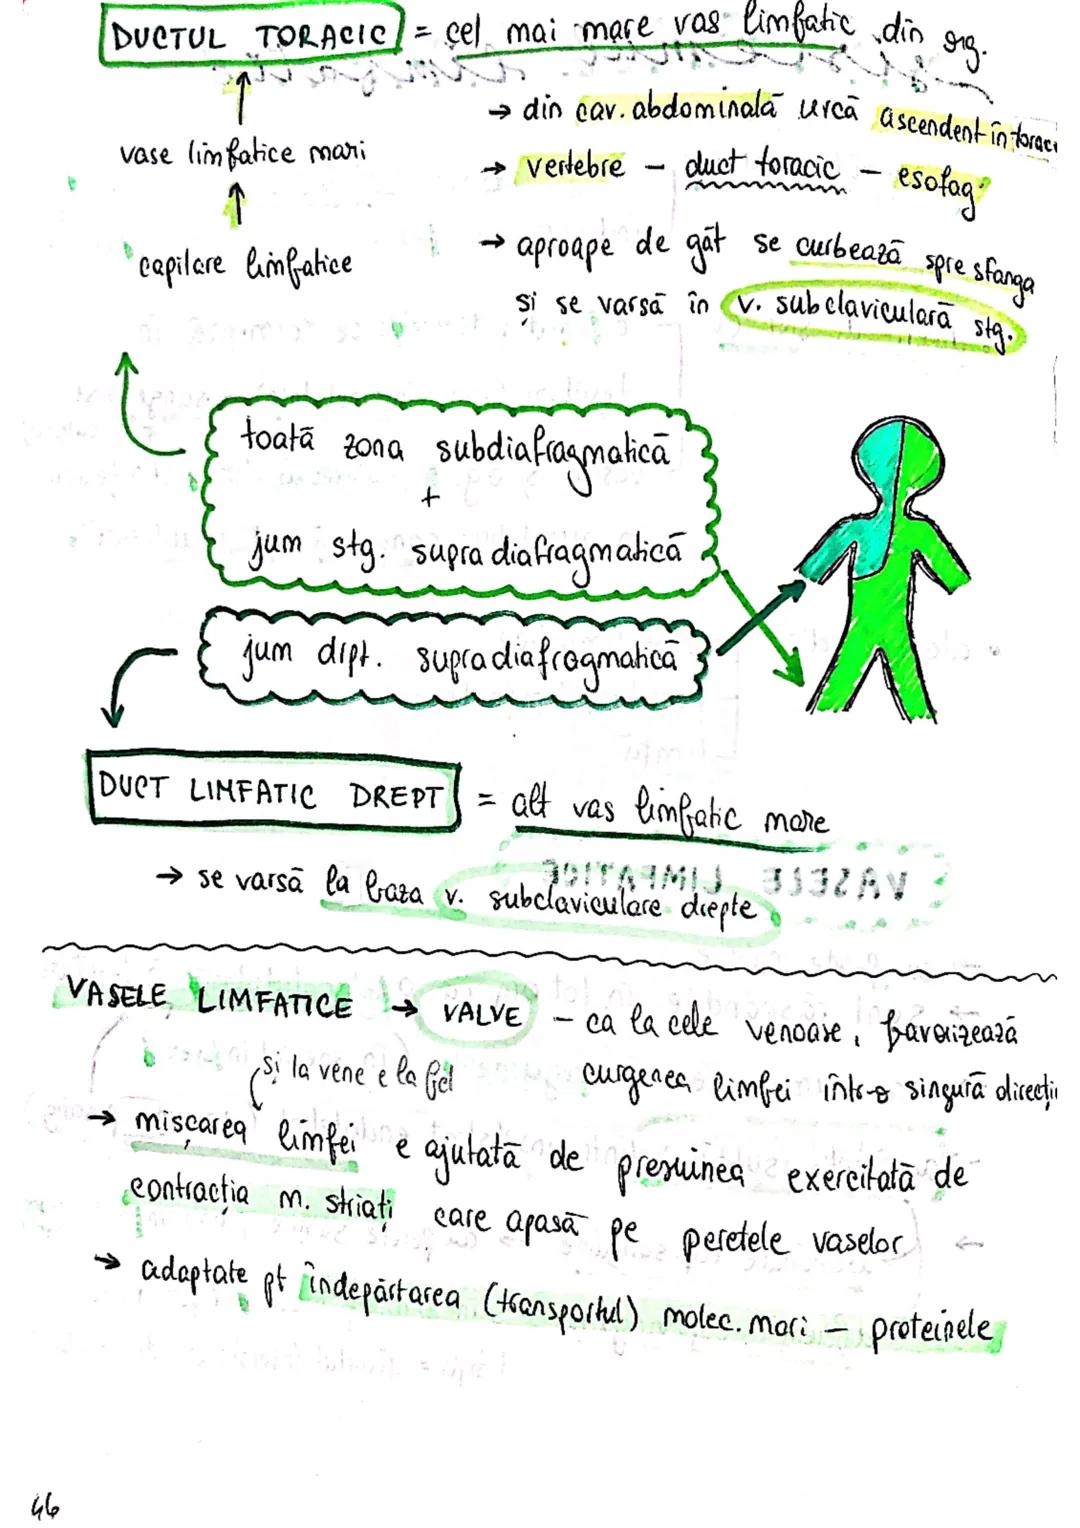 DUCTUL TORACIC = cel mai mare vas limfatic din org.
→ din cav. abdominală urcă ascendent în torace
vase limfatice mari
→ vertebre – duct toracic – esofag
→ aproape de gât se curbează spre stânga
capilare limfatice
și se varsă în v. subclaviculară stg.
toată zona subdiafragmatică
+
jum stg. supradiafragmatică
jum drpt. supradiafragmatică
DUCT LIMFATIC DREPT = alt vas limfatic mare
→ se varsă la baza v. subclaviculare drepte
VASELE LIMFATICE → VALVE – ca la cele venoase, favorizează
curgerea limfei într-o singură direcție
și la vene e la fel
→ mișcarea limfei e ajutată de presiunea exercitată de
contracția m. striați care apasă pe peretele vaselor
→ adaptate pt îndepărtarea (transportul) molec. mari – proteinele
46